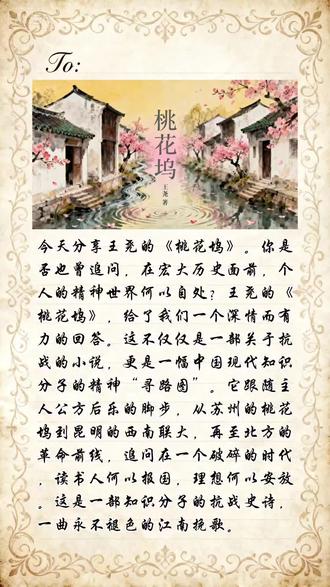 To:
桃花坞
王尧 著
今天分享王尧的《桃花坞》。你是
否也曾追问，在宏大历史面前，个
人的精神世界何以自处？王尧的《
桃花坞》，给了我们一个深情而有
力的回答。这不仅仅是一部关于抗
战的小说，更是一幅中国现代知识
分子的精神“寻路图”。它跟随主
人公方后乐的脚步，从苏州的桃花
坞到昆明的西南联大，再至北方的
革命前线，追问在一个破碎的时代
，读书人何以报国，理想何以安放
。这是一部知识分子的抗战史诗，
一曲永不褪色的江南挽歌。